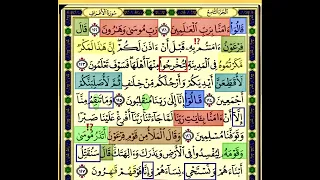 سُورَةُ الأَعْرَافِ الجُزْءُ التَّاسِعُ
قَالُوٓا۟ ءَامَنَّا بِرَبِّ ٱلْعَـٰلَمِينَ ١٢١ رَبِّ مُوسَىٰ وَهَـٰرُونَ ١٢٢ قَالَ
فِرْعَوْنُ ءَامَنتُم بِهِۦ قَبْلَ أَنْ ءَاذَنَ لَكُمْ إِنَّ هَـٰذَا لَمَكْرٌ
مَّكَرْتُمُوهُ فِى ٱلْمَدِينَةِ لِتُخْرِجُوا۟ مِنْهَآ أَهْلَهَا فَسَوْفَ تَعْلَمُونَ ١٢٣
لَأُقَطِّعَنَّ أَيْدِيَكُمْ وَأَرْجُلَكُم مِّنْ خِلَـٰفٍ ثُمَّ لَأُصَلِّبَنَّكُمْ
أَجْمَعِينَ ١٢٤ قَالُوٓا۟ إِنَّآ إِلَىٰ رَبِّنَا مُنقَلِبُونَ ١٢٥ وَمَا تَنقِمُ مِنَّآ
إِلَّآ أَنْ ءَامَنَّا بِـَٔايَـٰتِ رَبِّنَا لَمَّا جَآءَتْنَا رَبَّنَآ أَفْرِغْ عَلَيْنَا صَبْرًا
وَتَوَفَّنَا مُسْلِمِينَ ١٢٦ وَقَالَ ٱلْمَلَأُ مِن قَوْمِ فِرْعَوْنَ أَتَذَرُ مُوسَىٰ
وَقَوْمَهُۥ لِيُفْسِدُوا۟ فِى ٱلْأَرْضِ وَيَذَرَكَ وَءَالِهَتَكَ قَالَ سَنُقَتِّلُ
أَبْنَآءَهُمْ وَنَسْتَحْىِۦ نِسَآءَهُمْ وَإِنَّا فَوْقَهُمْ قَـٰهِرُونَ ١٢٧